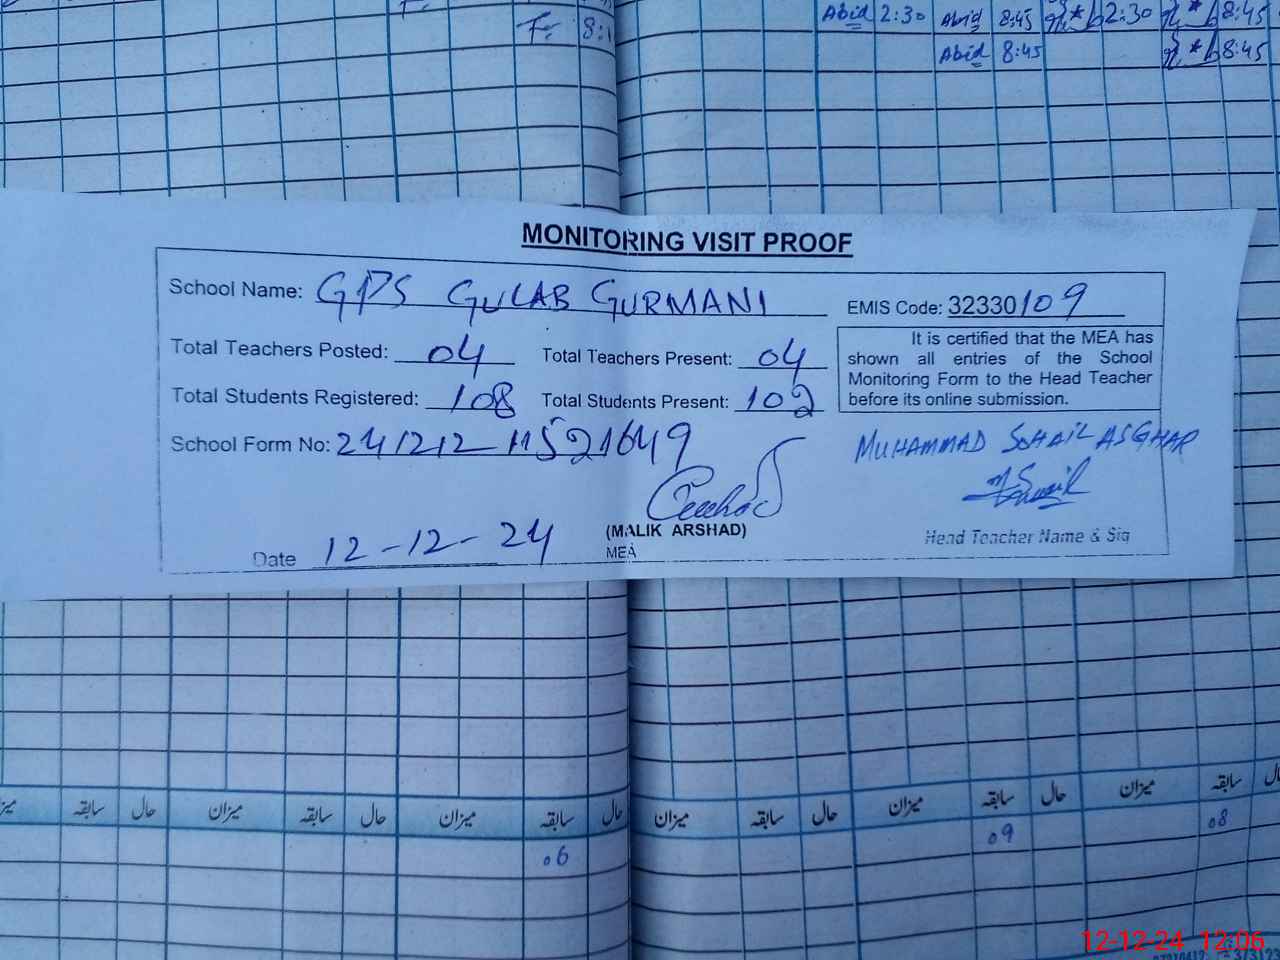 Abid 2:30 Abid 8:45 2:30 8:45
Fr 8:
Abid 8:45 8:45
MONITORING VISIT PROOF
School Name: GPS GULAB GURMANI
EMIS Code: 32330109
Total Teachers Posted: 04 Total Teachers Present: 04
Total Students Registered: 108 Total Students Present: 102
It is certified that the MEA has
shown all entries of the School
Monitoring Form to the Head Teacher
before its online submission.
School Form No: 241212-11521649
MUHAMMAD SOHAIL ASGHAR
(MALIK ARSHAD)
MEA
Head Teacher Name & Sig
Date 12-12-24
سابقہ حال میزان سابقہ حال میزان سابقہ حال میزان سابقہ حال میزان سابقہ حال میزان سابقہ
06 09 08
12-12-24 12:06